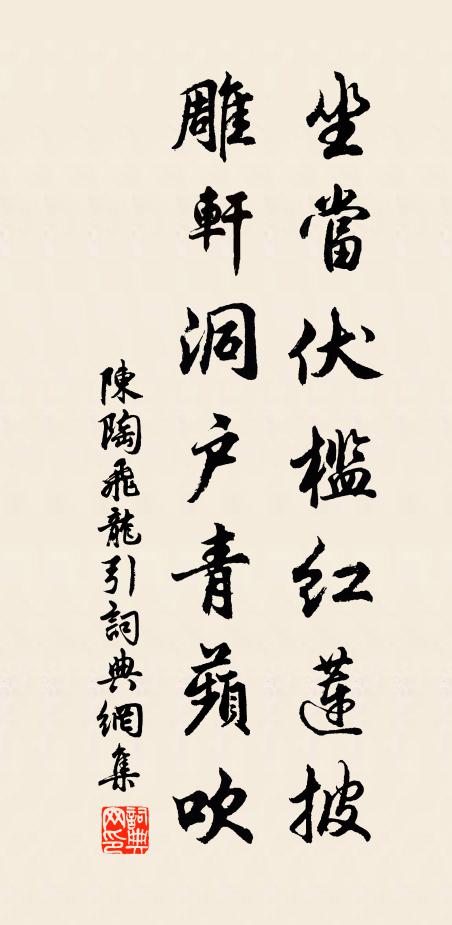 坐當伏檻紅蓮披
雕軒洞户青蘋吹
陳陶飛龍引詞典網集
詞典
网印